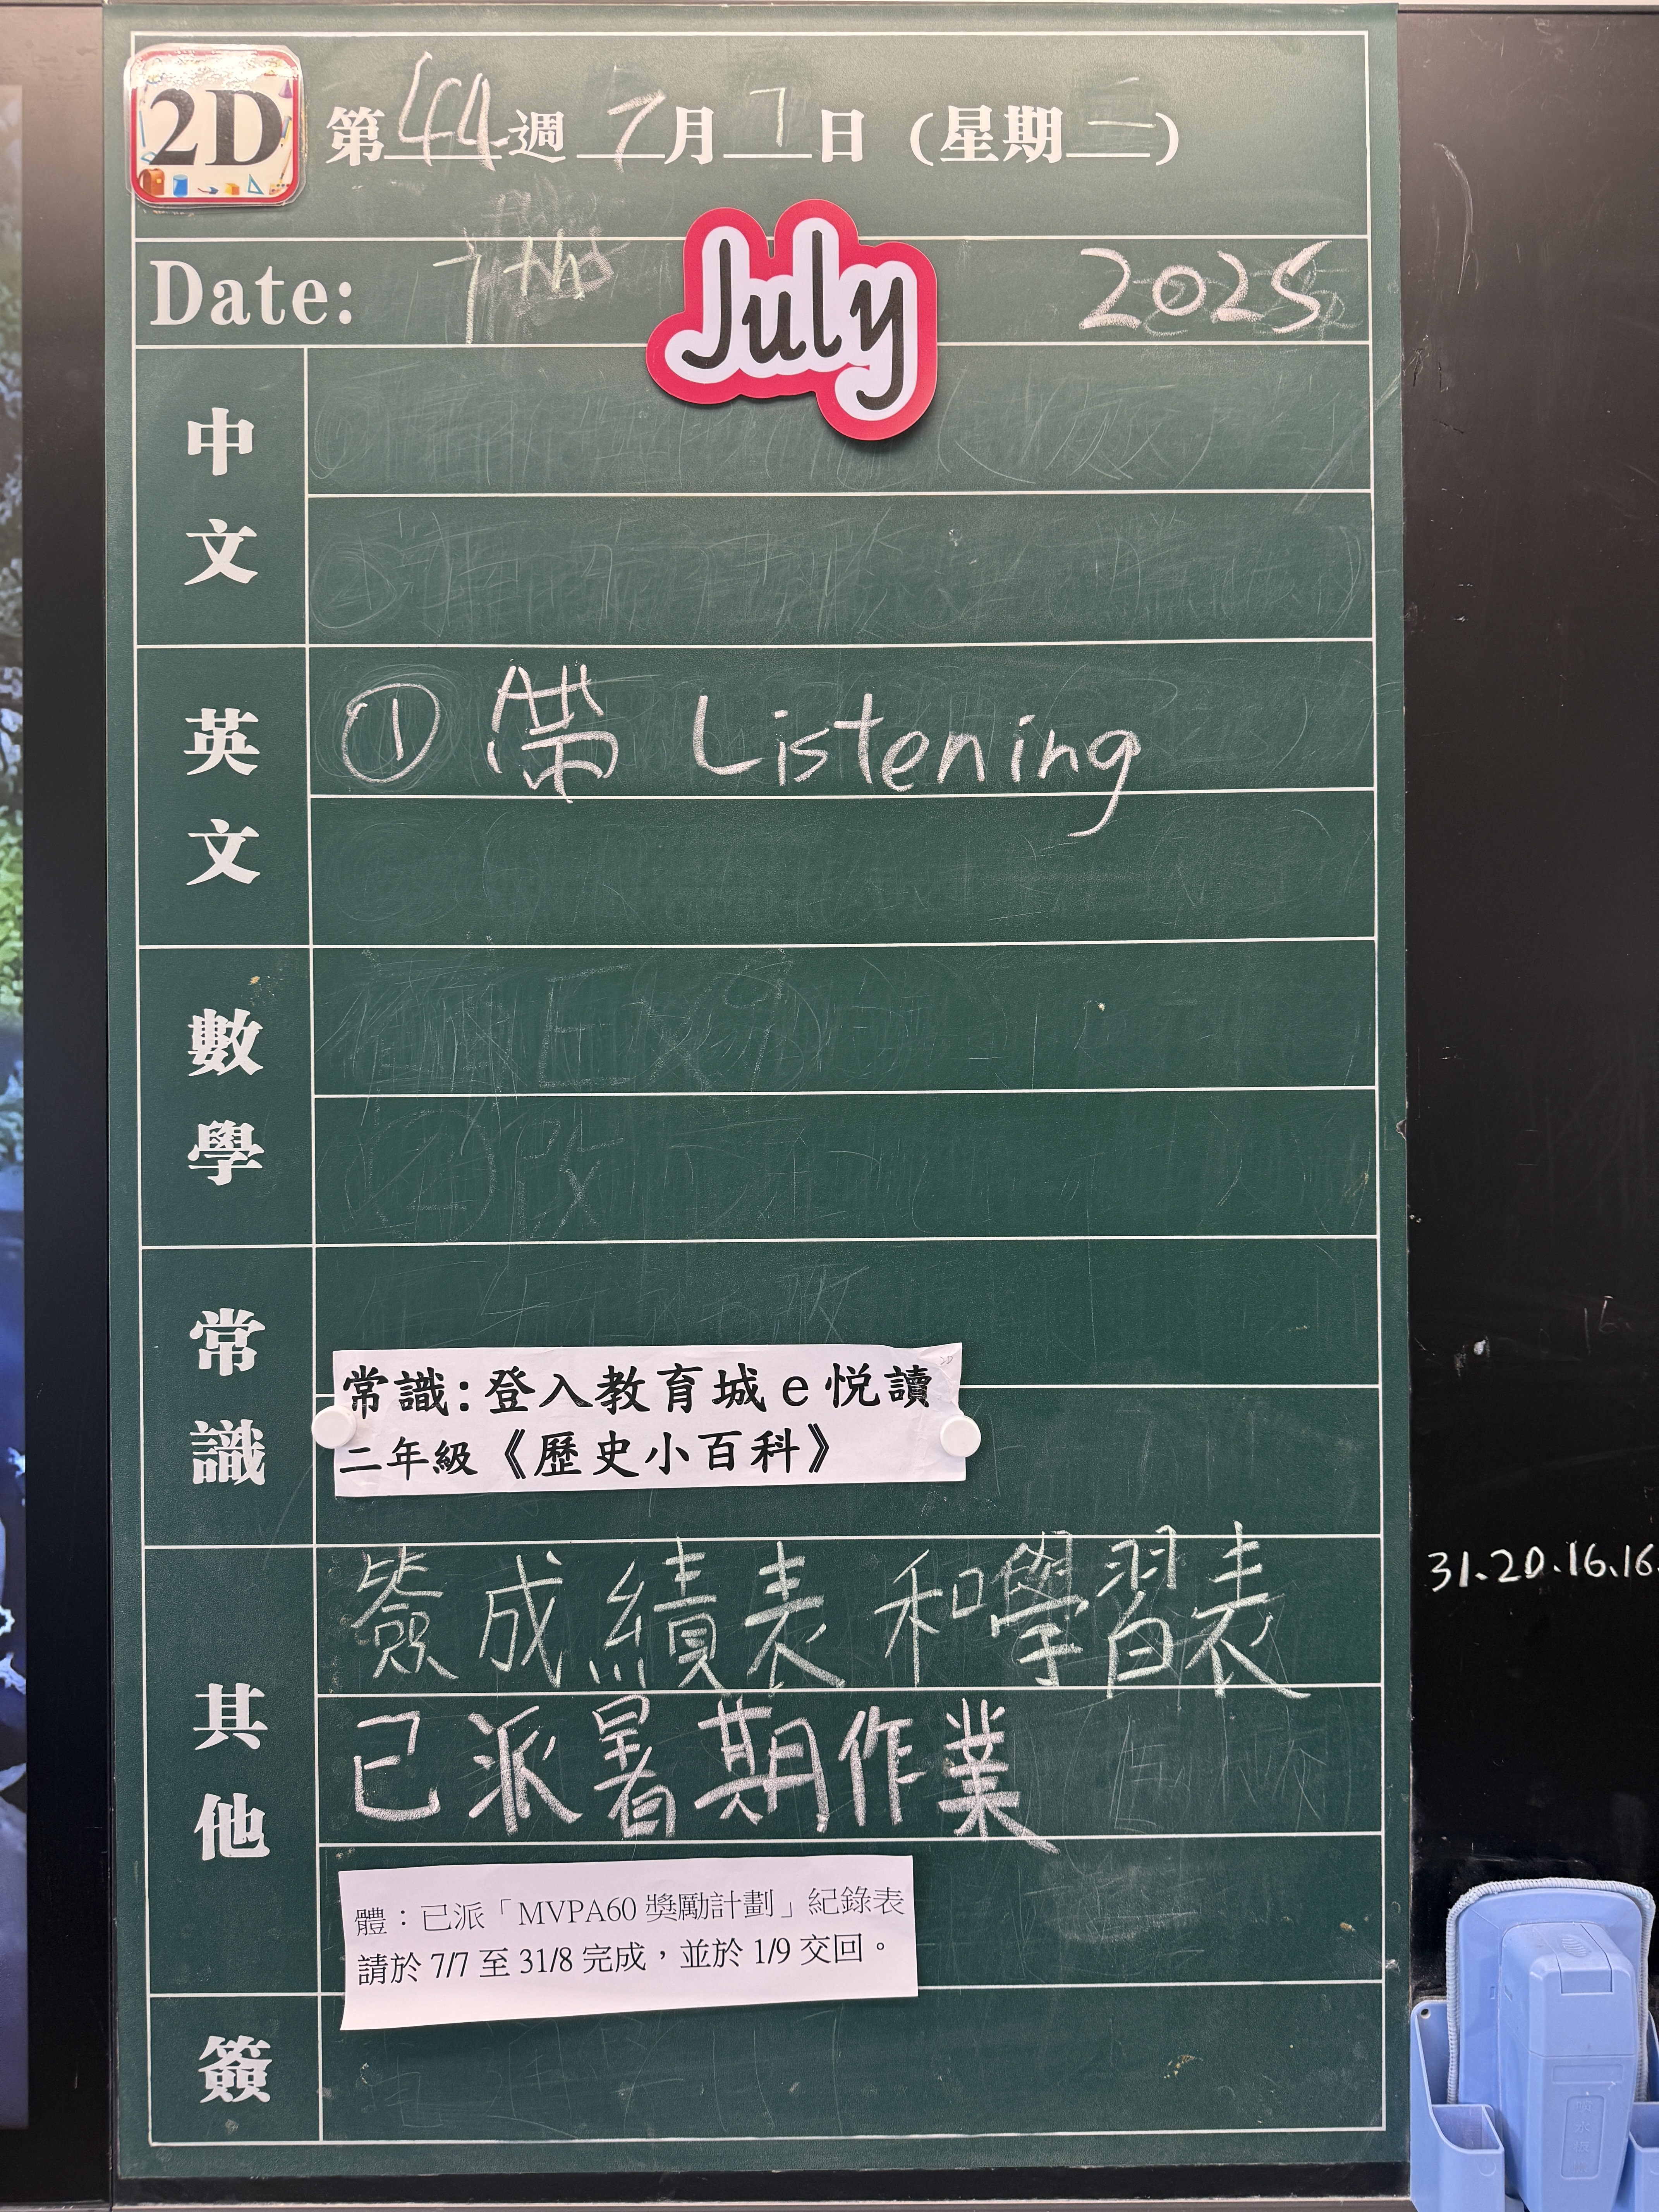 2D 第44週 7月7日 (星期一)
Date: 7th July 2025
中文
英文
① 帶 Listening
數學
常識
常識:登入教育城e悅讀
二年級《歷史小百科》
其他
簽成績表和學習表
已派暑期作業
體:已派「MVPA60獎勵計劃」紀錄表
請於 7/7 至 31/8 完成,並於 1/9 交回。
簽
31.20.16.16.